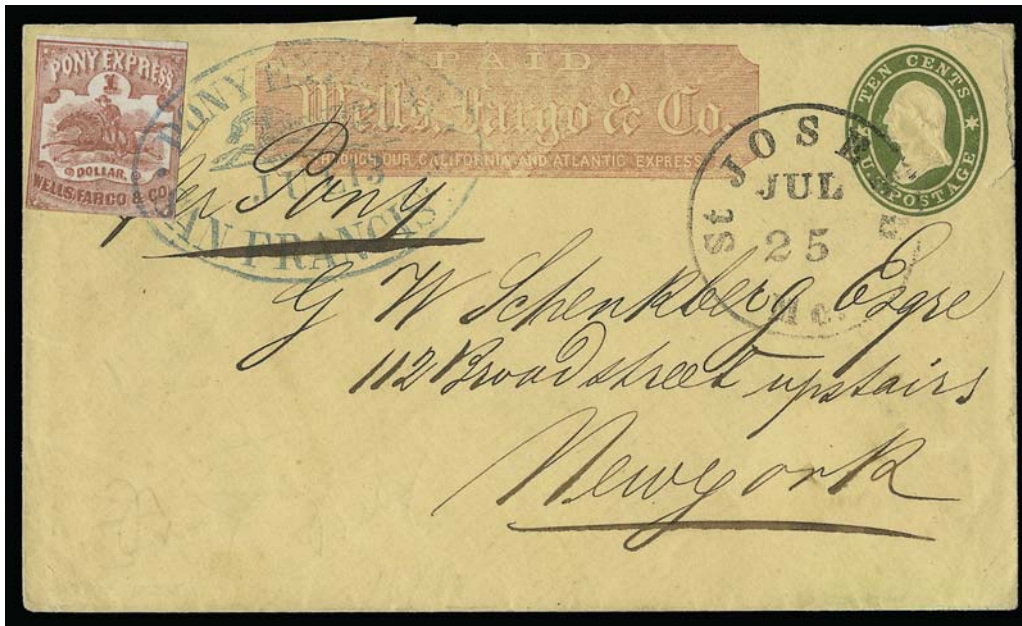 PONY EXPRESS
1
DOLLAR
WELLS, FARGO & CO
PONY EXPRESS
JUL 13
SAN FRANCISCO
PAID
Wells, Fargo & Co.
THROUGH OUR CALIFORNIA AND ATLANTIC EXPRESS
TEN CENTS
U.S. POSTAGE
St JOSEPH
JUL
25
Mo.
per Pony
G W Schenkberg Esqre
112 Broad street upstairs
Newyork